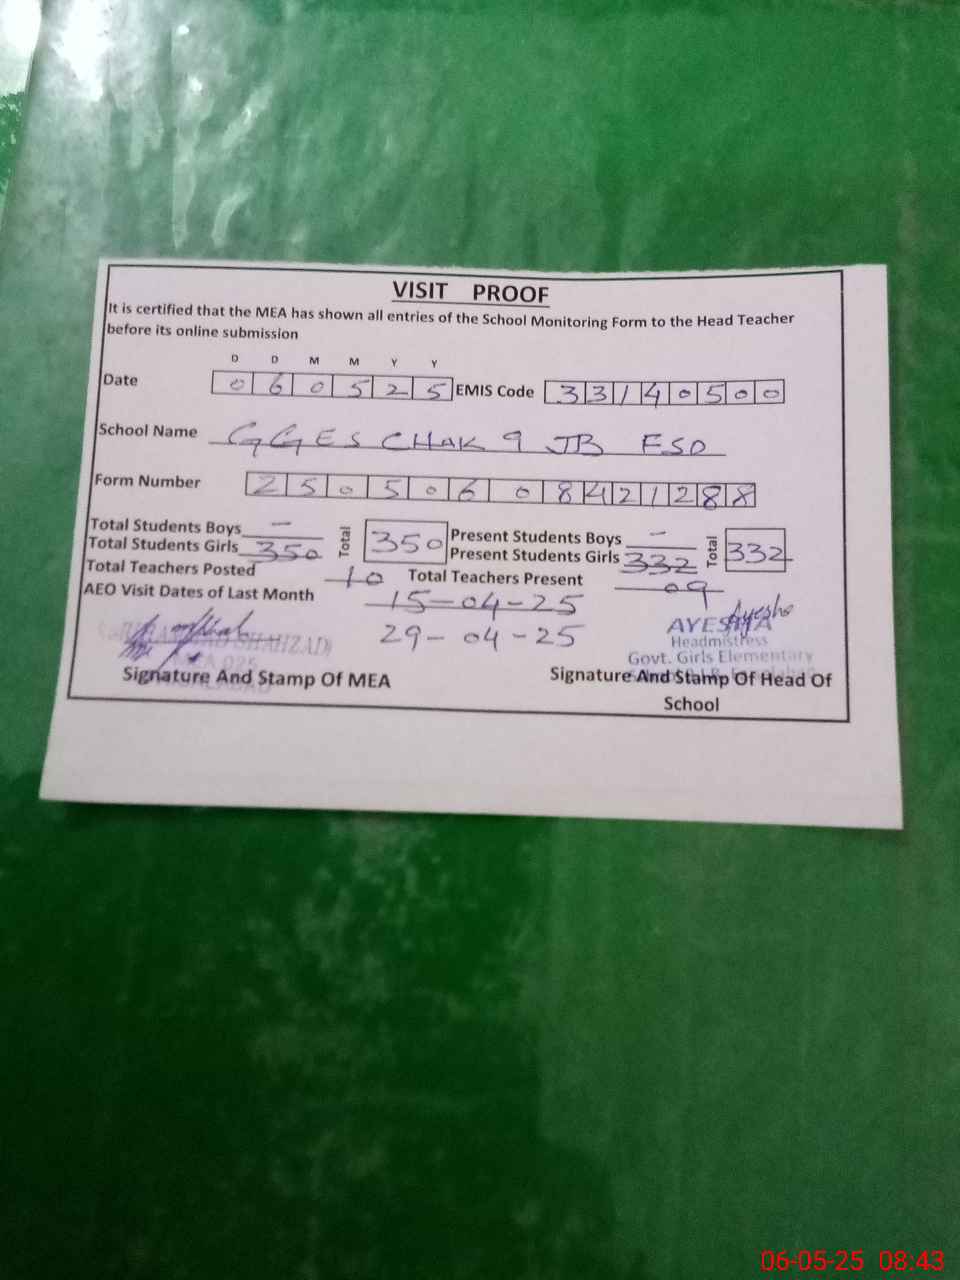 VISIT PROOF
It is certified that the MEA has shown all entries of the School Monitoring Form to the Head Teacher
before its online submission
D D M M Y Y
Date 0 6 0 5 2 5 EMIS Code 3 3 1 4 0 5 0 0
School Name GGES CHAK 9 JB FSD
Form Number 2 5 0 5 0 6 0 8 4 2 1 2 8 8
Total Students Boys - Total 350 Present Students Boys - Total 332
Total Students Girls 350 Present Students Girls 332
Total Teachers Posted 10 Total Teachers Present 09
AEO Visit Dates of Last Month 15-04-25
29-04-25
Ayesha
AYESHA
SHAHZAD Headmistress
Govt. Girls Elementary
Signature And Stamp Of MEA Signature And Stamp Of Head Of
School
06-05-25 08:43